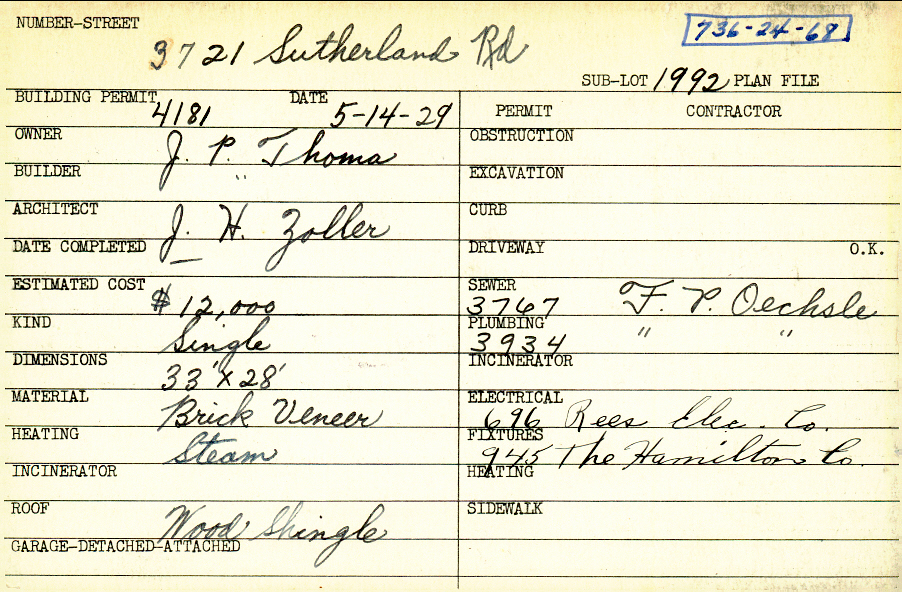 NUMBER-STREET
3721 Sutherland Rd
736-24-68
SUB-LOT 1992 PLAN FILE
BUILDING PERMIT 4181 DATE 5-14-29
PERMIT CONTRACTOR
OWNER J. P. Thoma
OBSTRUCTION
BUILDER "
EXCAVATION
ARCHITECT J. H. Zoller
CURB
DATE COMPLETED —
DRIVEWAY O.K.
ESTIMATED COST $12,000
SEWER 3767 F. P. Oechsle
KIND Single
PLUMBING 3934 " "
DIMENSIONS 33' x 28'
INCINERATOR
MATERIAL Brick Veneer
ELECTRICAL 696 Rees Elec. Co.
HEATING Steam
FIXTURES 945 The Hamilton Co.
INCINERATOR
HEATING
ROOF Wood Shingle
SIDEWALK
GARAGE-DETACHED-ATTACHED